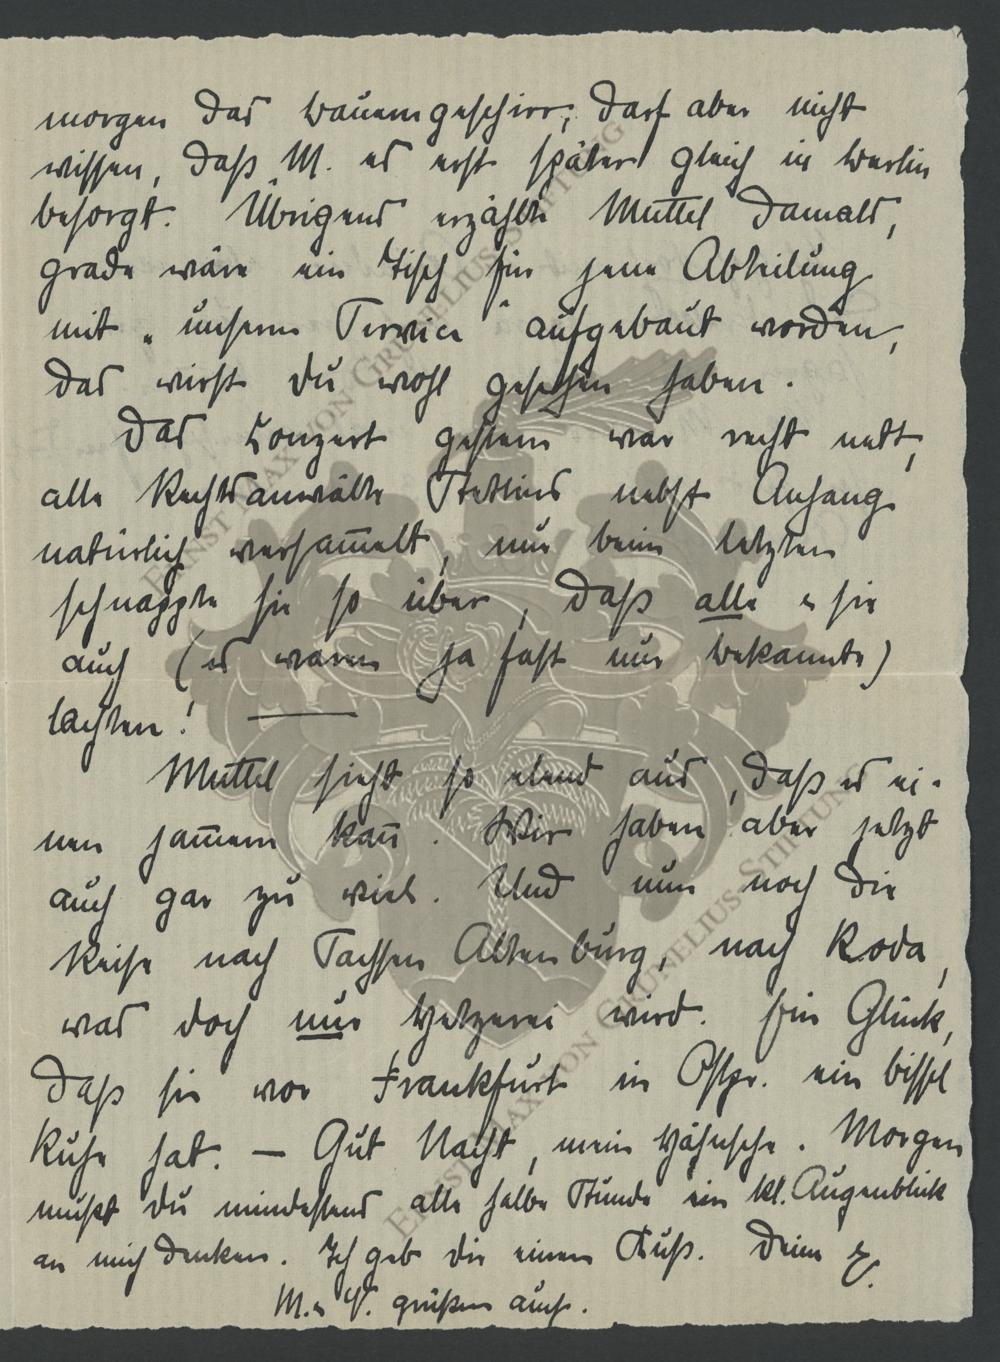 morgen das Bauerngeschirr; darf aber nicht
wissen, daß M. es erst später gleich in Berlin
besorgt. Übrigens erzählte Muttel damals,
grade wäre ein Tisch für jene Abteilung
mit „unserm Service“ aufgebaut worden,
das wirst du wohl gesehen haben.
Das Conzert gestern war recht nett,
alle Rechtsanwälte Stettins nebst Anhang
natürlich versam̅elt, nur beim letzten
schnappte sie so über, daß alle u. sie
auch (es waren ja fast nur Bekannte)
lachten!
Muttel sieht so elend aus, daß es ei-
nen jam̅ern kan̅. Wir haben aber jetzt
auch gar zu viel. Und nun noch die
Reise nach Sachsen Altenburg, nach Roda,
was doch nur Hetzerei wird. Ein Glück,
daß sie vor Frankfurt in Ostpr. ein bissel
Ruhe hat. — Gut Nacht, mein Hähnsche. Morgen
mußt du mindestens alle halbe Stunde ein kl. Augenblick
an mich denken. Ich geb dir einen Kuß. Deine
M. u. V. grüßen auch.
ERNST MAX VON GRUNELIUS-STIFTUNG
ERNST MAX VON GRUNELIUS-STIFTUNG